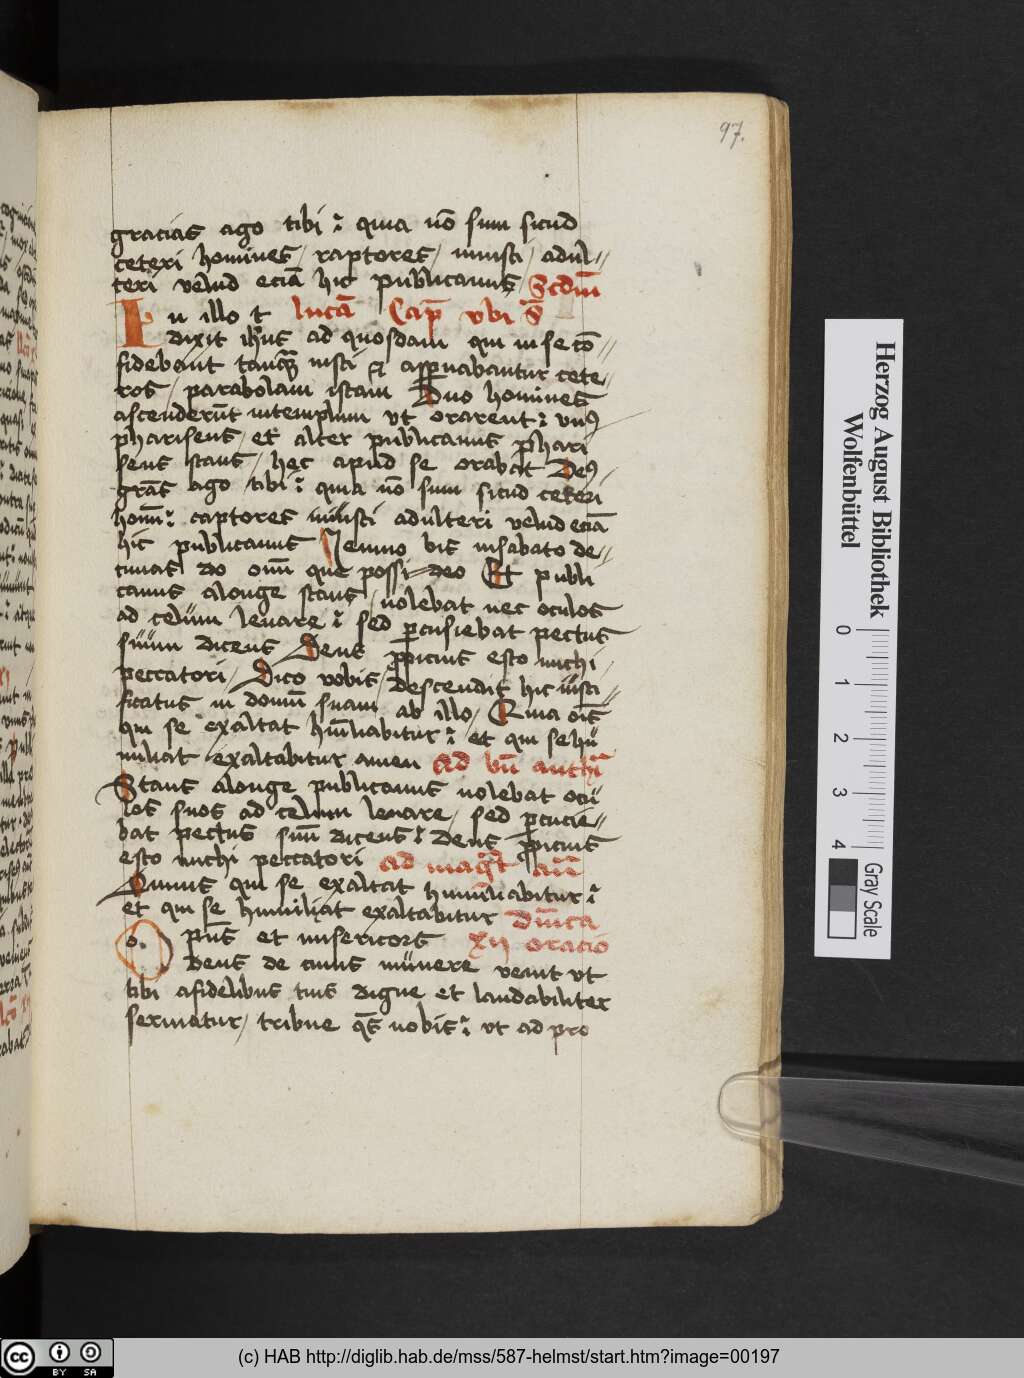 97.
gracias ago tibi ⁊ quia nō sum sicud
ceteri homines / raptores / iniusti / adul//
teri velud eciā hic publicanus / Scdm̄
In illo t̄ lucā Cap̄ vbi s̄
dixit ih̄us ad quosdam qui in se cō//
fidebant tanq̄ iusti et asp̄nabantur cete/
ros / parabolam istam Duo homines
ascenderūt in templum vt orarent : vnꝰ
phariseus / et alter publicanus phari
seus stans / hec apud se orabat Deꝰ /
grās ago tibi : quia nō sum sicud ceteri
hoīm : raptores iniusti adulteri velud eciā
hic publicanus Jeiuno bis in sabato de/
cimas do oīm que possi=deo Et publi
canus alonge stans / nolebat nec oculos
ad celum leuare : sed ꝑcusiebat pectus
suum dicens Deus ꝓpicius esto michi /
peccatori / Dico vobis / descendit hic iusti//
ficatus in domū suam ab illo / Quia oīs
qui se exaltat hūiliabitur : et qui se hu
miliat exaltabitur amen Ad bn̄ anthiā
Stans alonge publicanus nolebat ocu
los suos ad celum leuare / sed ꝑcucie//
bat pectus suū dicens : Deus ꝓpicius
esto michi peccatori ad mag̅t an̄
Omnis qui se exaltat humiliabitur :
et qui se humiliat exaltabitur Dn̄ica
o. pn̄s et misericors xij oracio
Deus de cuius munere venit vt
tibi afidelibus tuis digne et laudabiliter
seruiatur / tribue qs̄ nobis : vt ad pro
Herzog August Bibliothek
Wolfenbüttel
0 1 2 3 4
Gray Scale
cc BY SA
(c) HAB http://diglib.hab.de/mss/587-helmst/start.htm?image=00197